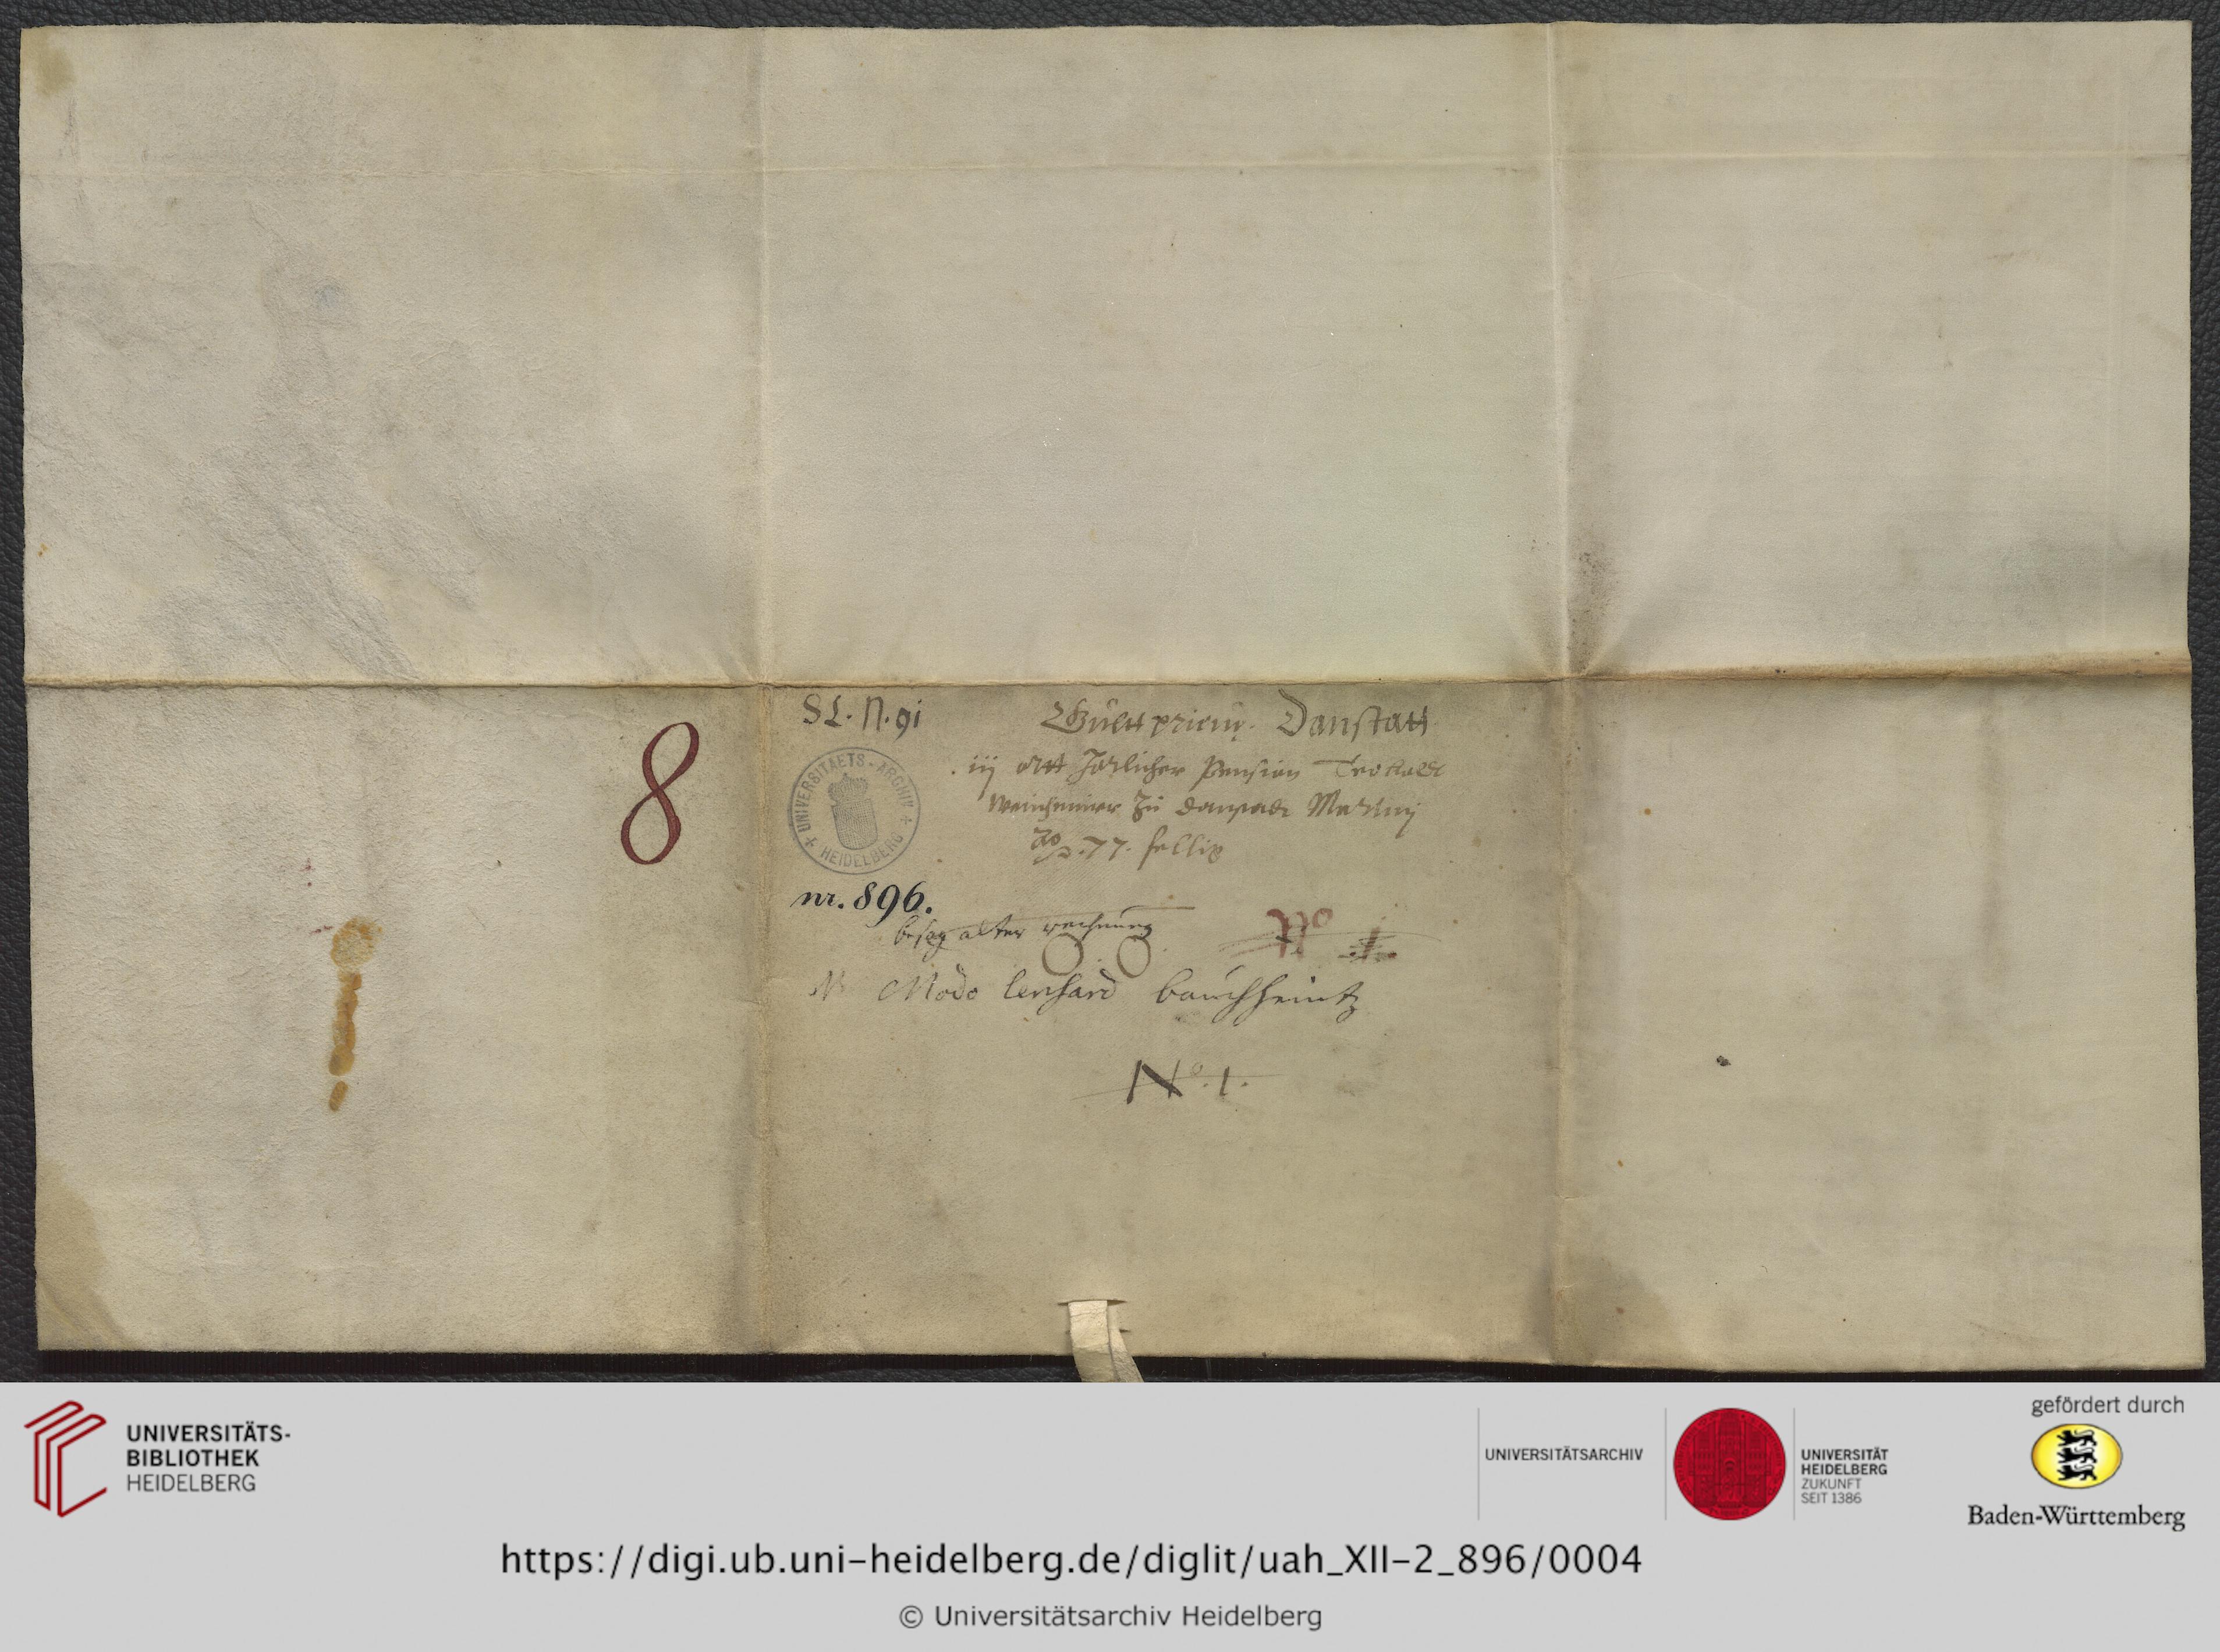 SL. N. 91
Danstatt
iij ortt Jarlicher Pension
Weinheimer zu Danstadt Martinj
Ao 77. fellig
8
UNIVERSITAETS-ARCHIV
HEIDELBERG
nr. 896.
besag alter rechnung
No 1
NB Modo lenhard bauchheintz
No. 1.
UNIVERSITÄTS-
BIBLIOTHEK
HEIDELBERG
UNIVERSITÄTSARCHIV
UNIVERSITÄT
HEIDELBERG
ZUKUNFT
SEIT 1386
gefördert durch
Baden-Württemberg
https://digi.ub.uni-heidelberg.de/diglit/uah_XII-2_896/0004
© Universitätsarchiv Heidelberg